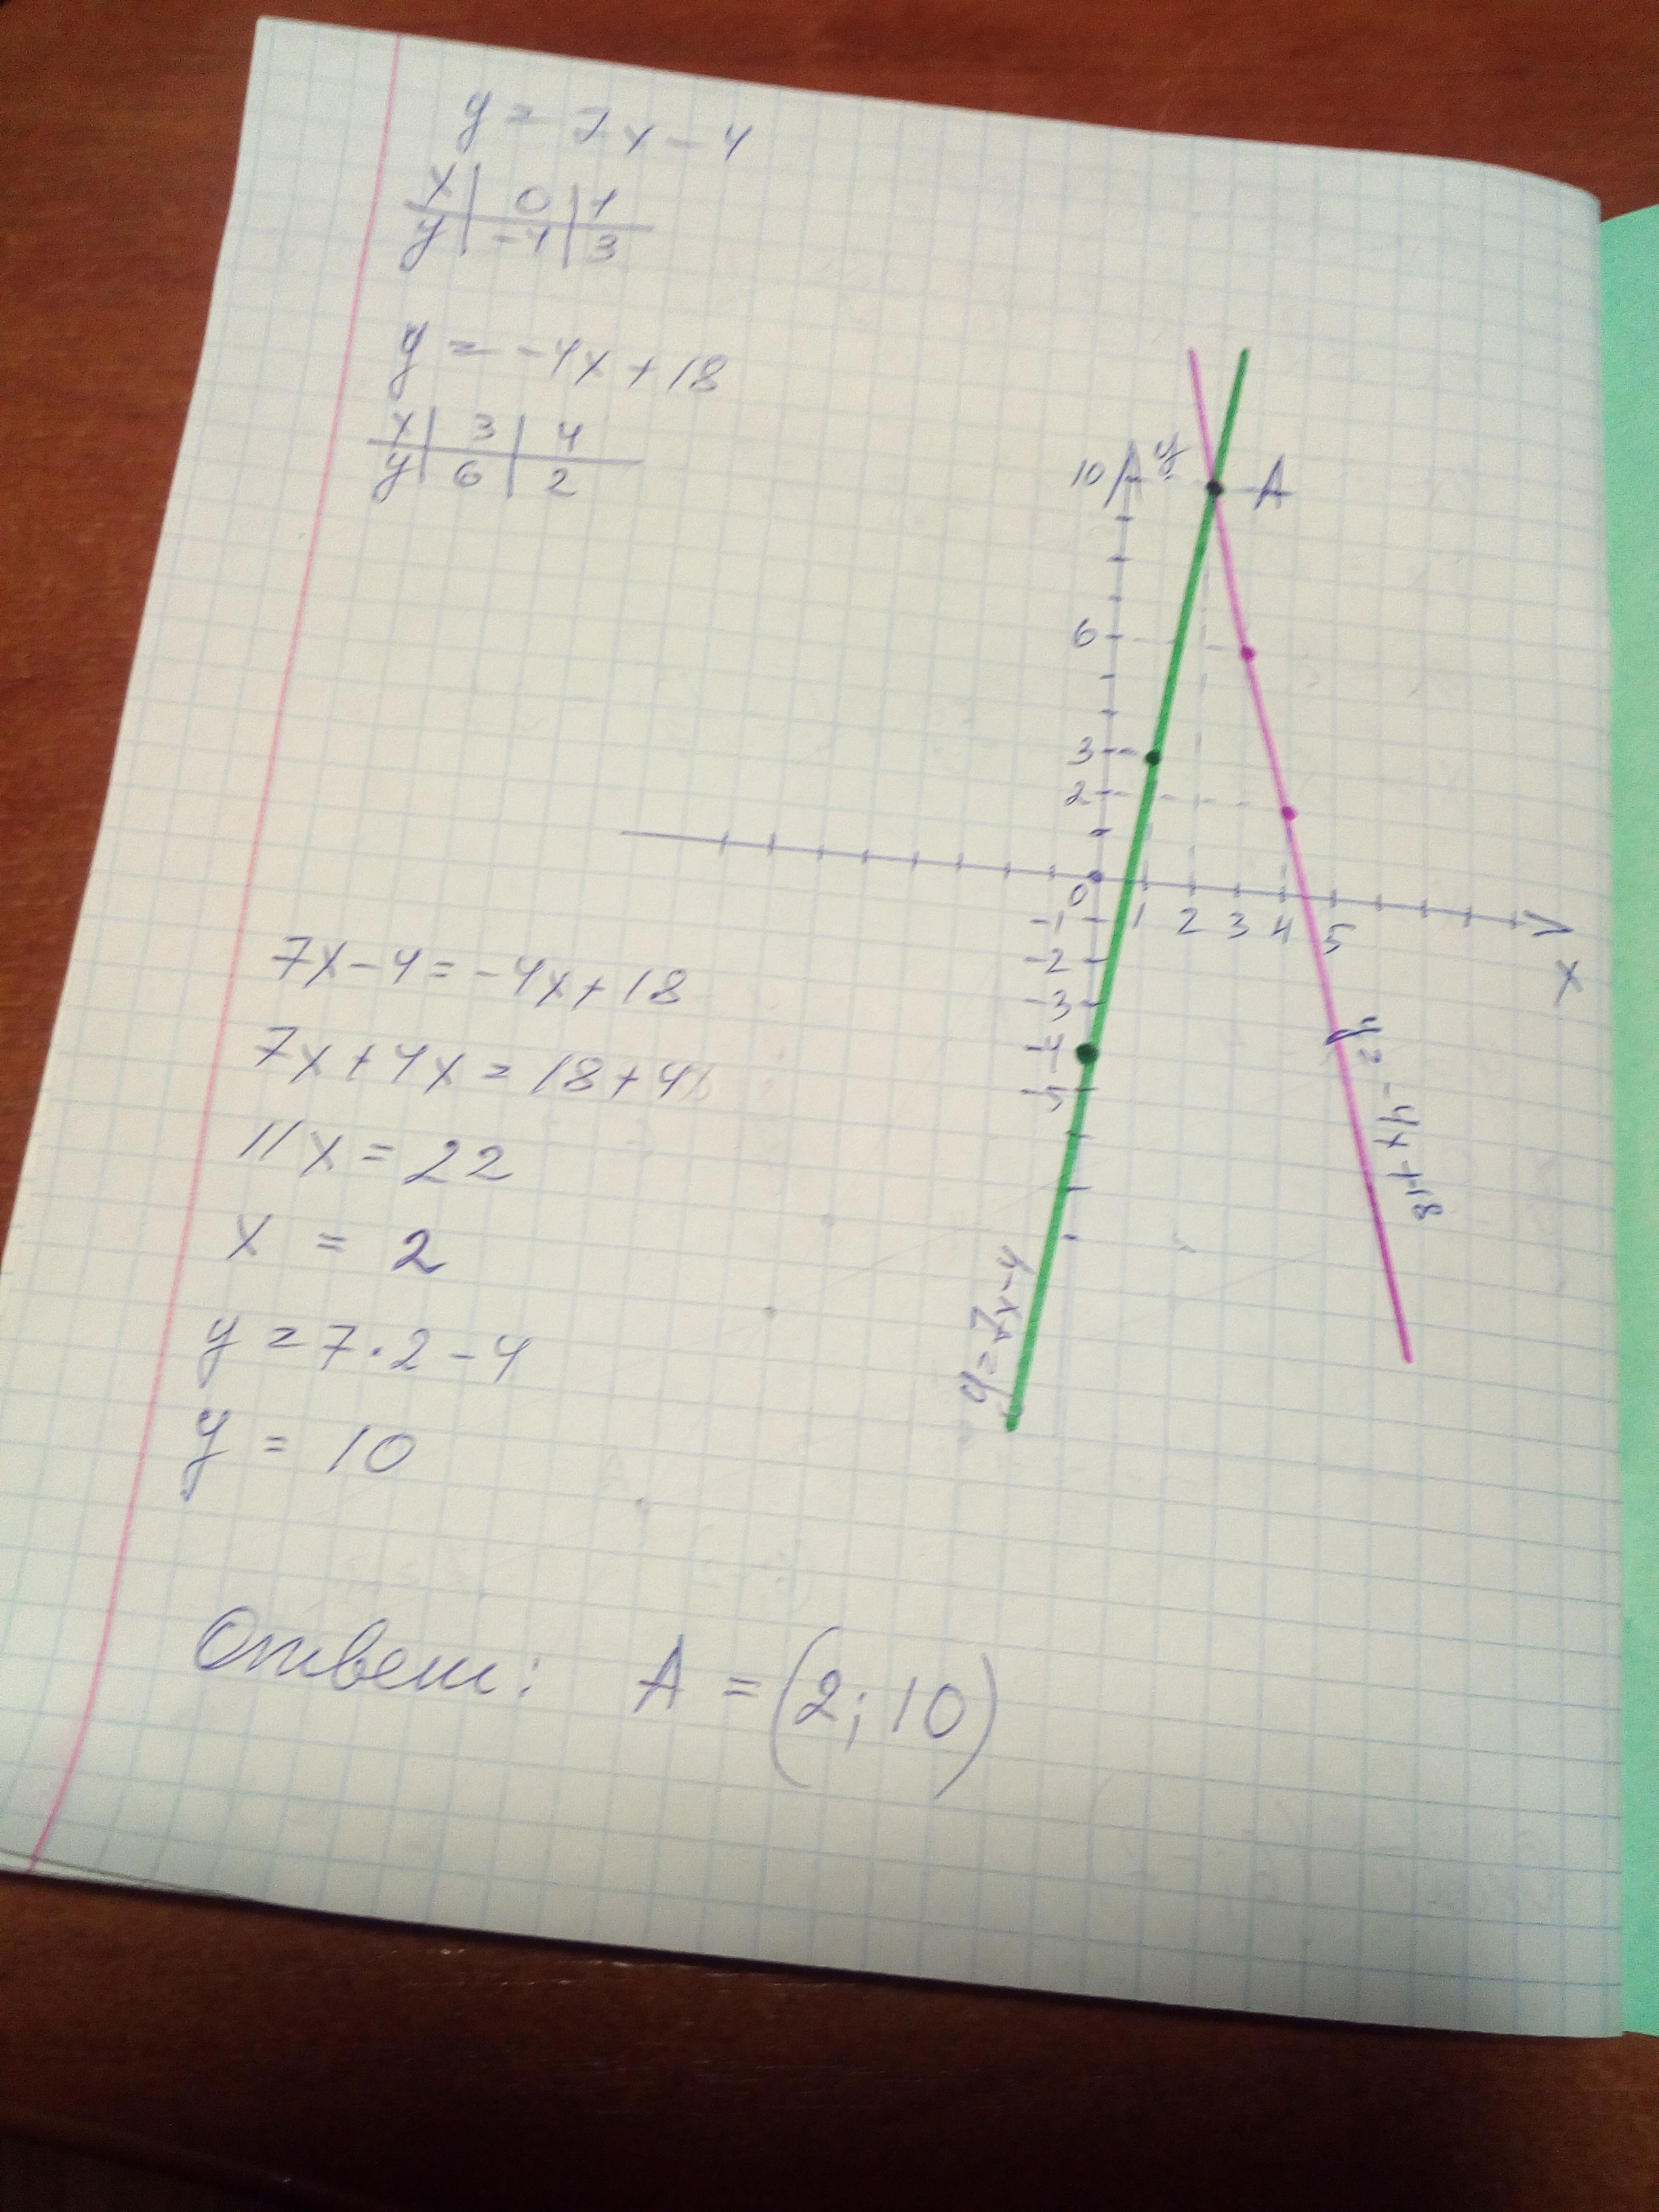 y = 7x - 4
x | 0 | 1
y | -4 | 3
y = -4x + 18
x | 3 | 4
y | 6 | 2
7x - 4 = -4x + 18
7x + 4x = 18 + 4
11x = 22
x = 2
y = 7 · 2 - 4
y = 10
Ответ: A = (2; 10)
10 y A
6
3
2
0 1 2 3 4 5
x
-1
-2
-3
-4
-5
y = 7x - 4
y = -4x + 18